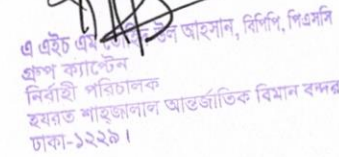 এ এইচ এম তৌহিদ-উল আহসান, বিপিপি, পিএসসি
গ্রুপ ক্যাপ্টেন
নির্বাহী পরিচালক
হযরত শাহজালাল আন্তর্জাতিক বিমান বন্দর
ঢাকা-১২২৯।